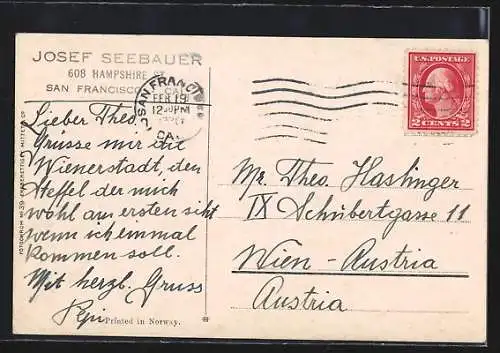 JOSEF SEEBAUER
608 HAMPSHIRE ST.
SAN FRANCISCO
SAN FRANCISCO
CAL.
FEB 19
12 30PM
CAL.
U.S. POSTAGE
2 CENTS 2
Lieber Theo.
Grüsse mir die
Wienerstadt, den
Steffel der mich
wohl am ersten siht
wenn ich einmal
kommen soll.
Mit herzl. Gruss
Pepi
Mr. Theo. Haslinger
IX Schubertgasse 11
Wien-Austria
Austria
Printed in Norway.